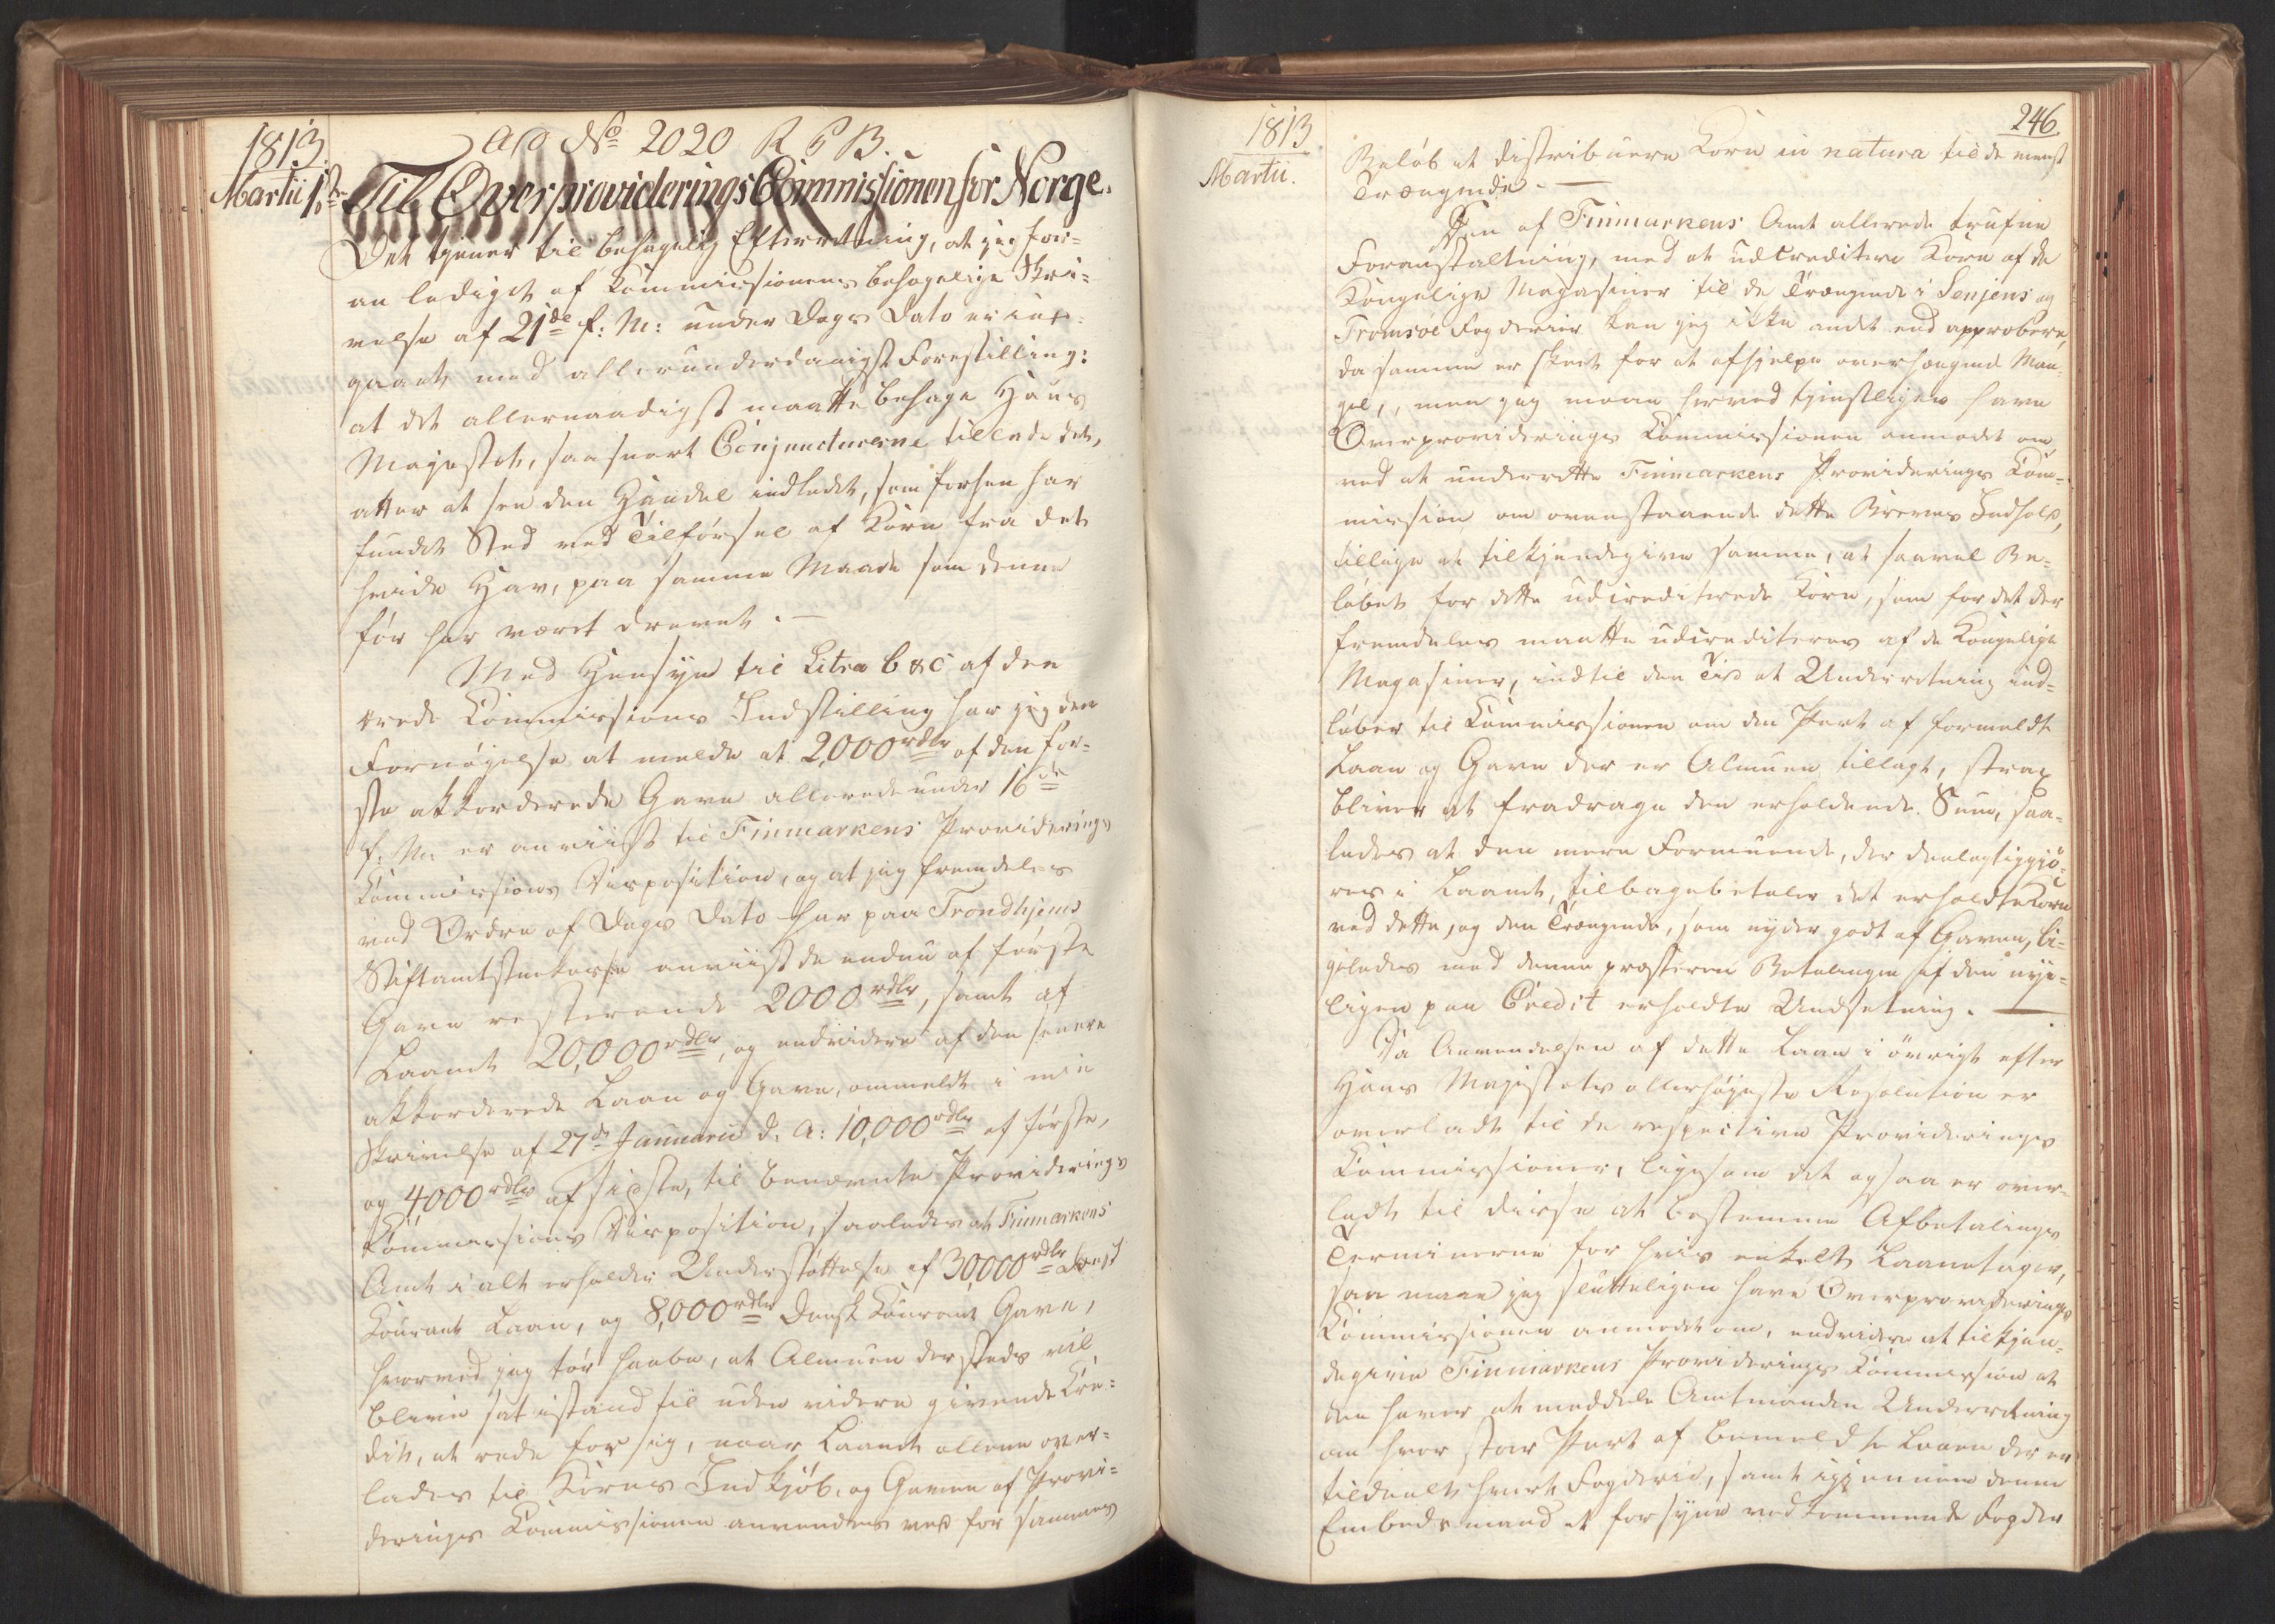 1813.
Martii 1ste
ad No 2020 R P B.
Til Overproviderings Commissionen for Norge.
Det tjener til behagelig Efterretning, at jeg for-
anlediget af Kommissionens behagelige Skri-
velse af 21de f. M: under Dags Dato er ind-
gaaet med allerunderdanigst Forestilling:
at det allernaadigst maatte behage Hans
Majestet, saasnart Conjuncturerne tillade det,
atter at see den Handel indledet, som forhen har
fundet Sted ved Tilførsel af Korn fra det
hvide Hav, paa samme Maade som denne
før har været drevet. —
Med Hensyn til Litra b & c af den
Kommissions Indstilling har jeg den
Fornøyelse at melde at 2,000 rdlr af den før-
ste akkorderede Gave allerede under 16de
f. M: er anviist til Finmarkens Providerings
Kommissions Disposition, og at jeg fremdeles
ved Ordre af Dags Dato har paa Trondhjems
Stiftamtstuekasse anviist de endnu af første
Gave resterende 2000 rdlr, samt af
Laanet 20,000 rdlr, og endvidere af den senere
akkorderede Laan og Gave, ommeldt i min
Skrivelse af 27de Januarii d. A: 10,000 rdlr af første,
og 4000 rdlr af sidste, til benævnte Providerings
Kommissions Disposition, saaledes at Finmarkens
Amt i alt erholder Understøttelse af 30,000 rdlr Dansk
Kourant Laan, og 8,000 rdlr Dansk Kourant Gave,
hvorved jeg tør haabe, at Almuen dersteds vil
blive sat istand til uden videre givende Kre-
dit, at rede for sig, naar Laanet allene over-
lades til Korns Indkjøb, og Gaven af Provi-
derings Kommissionen anvendes ved for sammes
1813
Martii.
246.
Beløb at distribuere Korn in natura til de meest
Trængende. —
Den af Finmarkens Amt allerede trufne
Foranstaltning, med at udcreditere Korn af de
Kongelige Magasiner til de Trængende i Senjens og
Tromsøe Fogderier kan jeg ikke andet end approbere,
da samme er skeet for at afhjelpe overhængende Man-
gel, men jeg maae herved tjenstligen have
Overproviderings Kommissionen anmodet om
ved at underrette Finmarkens Providerings Kom-
mission om ovenstaaende dette Brevets Indhold,
tillige at tilkjendegive samme, at saavel Be-
løbet for dette udcrediterede Korn, som for det der
fremdeles maatte udcrediteres af de Kongelige
Magasiner, indtil den Tid at Underretning ind-
løber til Kommissionen om den Part af formeldte
Laan og Gave der er Almuen tillagt, strax
bliver at fradrage den erholdende Sum, saa-
ledes at den mere Formuende, der deelagtiggjø-
res i Laanet, tilbagebetaler det erholdte Korn
ved dette, og den Trængende, som nyder godt af Gaven, li-
geledes med denne præsterer Betalingen af den nye-
ligen paa Credit erholdte Undsetning. —
Da Anvendelsen af dette Laan i øvrigt efter
Hans Majestets allerhøjeste Resolution er
overladt til de respective Providerings
Kommissioner, ligesom det ogsaa er over-
ladt til disse at bestemme Afbetalings
Terminerne for hvis enkelt Laantager,
saa maae jeg slutteligen have Overproviderings
Kommissionen anmodet om, endvidere at tilkjen-
degive Finmarkens Providerings Kommission at
den haver at meddele Amtmanden Underretning
om hvor stor Part af bemeldte Laan der er
tildeelt hvert Fogderie, samt igjennem denne
Embedsmand at forsyne vedkommende Fogder